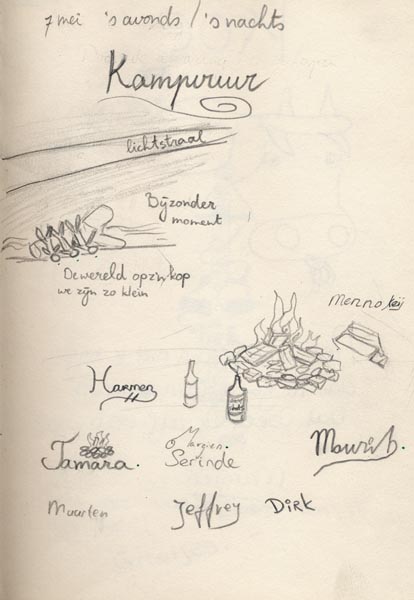 7 mei 's avonds / 's nachts
Kampvuur
lichtstraal
Bijzonder
moment
De wereld op z'n kop
we zijn zo klein
Menno
Harmen
Marzien
Tamara.
Serinde
Maurits
Maarten
Jeffrey
Dirk